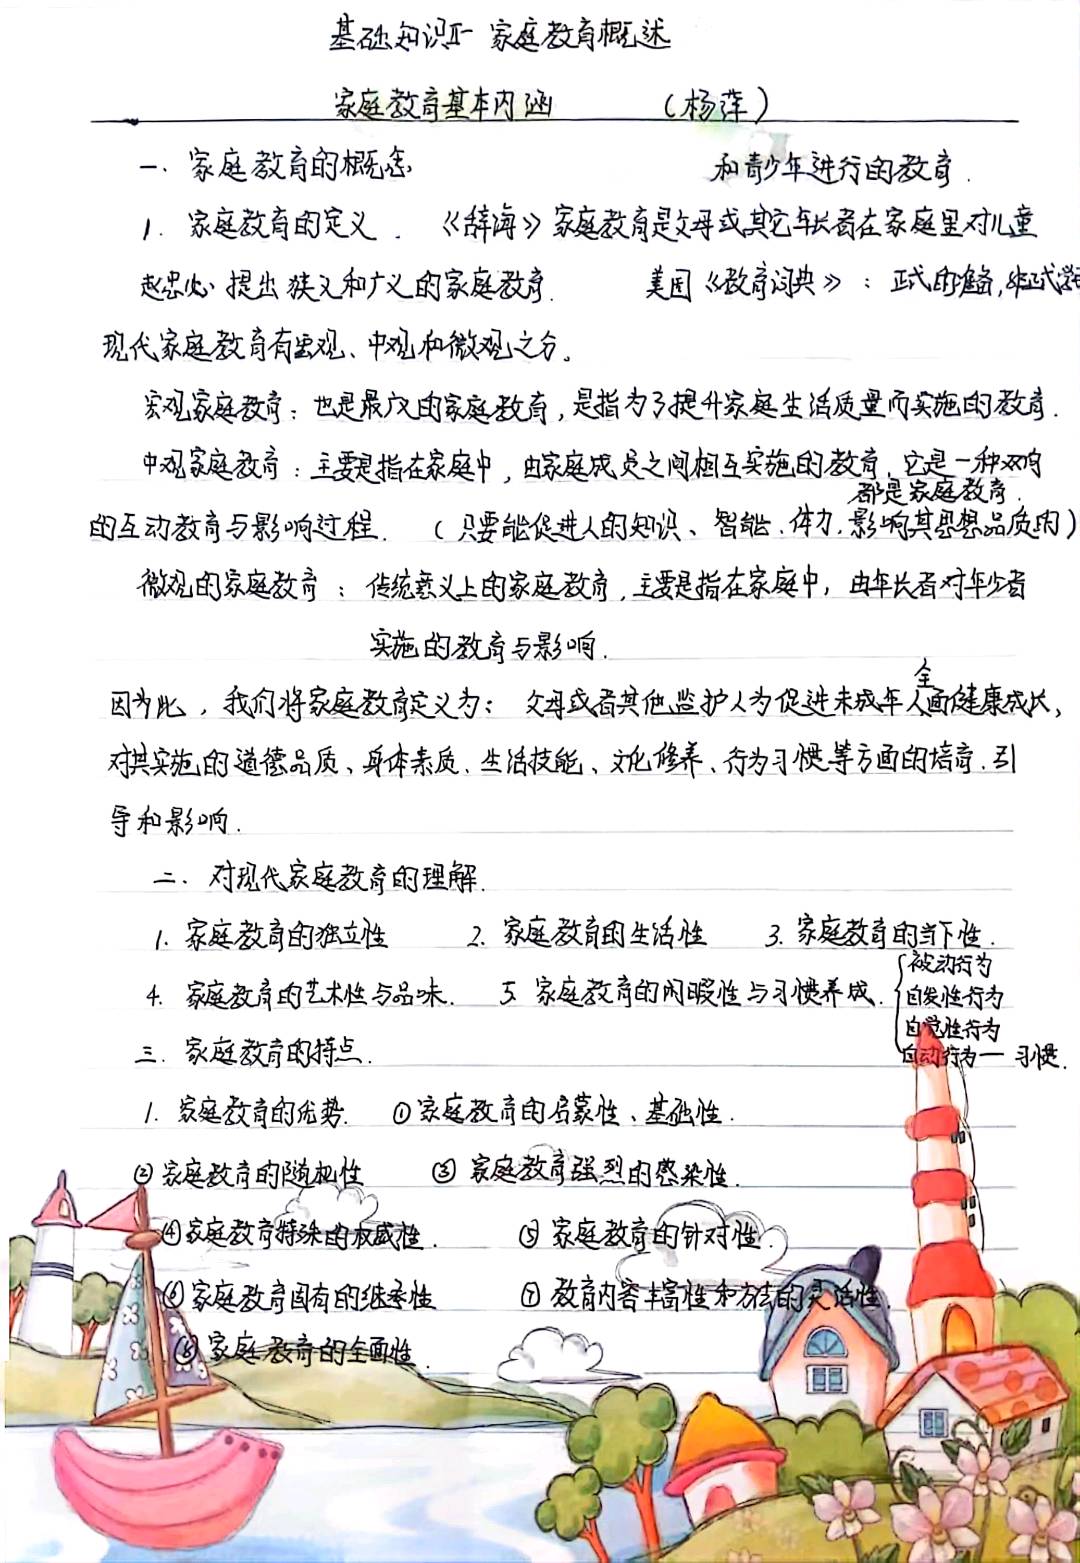 基础知识Ⅱ- 家庭教育概述
家庭教育基本内涵 (杨萍)
一、家庭教育的概念
和青少年进行的教育.
1. 家庭教育的定义. 《辞海》家庭教育是父母或其它年长者在家庭里对儿童
赵忠心 提出狭义和广义的家庭教育. 美国《教育词典》: 正式的准备,非正式
现代家庭教育有宏观、中观和微观之分。
宏观家庭教育: 也是最广义的家庭教育,是指为了提升家庭生活质量而实施的教育.
中观家庭教育: 主要是指在家庭中,由家庭成员之间相互实施的教育,它是一种双向
都是家庭教育.
的互动教育与影响过程. (只要能促进人的知识、智能、体力,影响其思想品质的)
微观的家庭教育: 传统意义上的家庭教育,主要是指在家庭中,由年长者对年少者
实施的教育与影响.
全
因为此,我们将家庭教育定义为: 父母或者其他监护人为促进未成年人面健康成长,
对其实施的道德品质、身体素质、生活技能、文化修养、行为习惯等方面的培育.引
导和影响.
二、对现代家庭教育的理解.
1. 家庭教育的独立性 2. 家庭教育的生活性 3. 家庭教育的当下性.
4. 家庭教育的艺术性与品味. 5. 家庭教育的闲暇性与习惯养成.
被动行为
自发性行为
自觉性行为
自动行为—习惯.
三. 家庭教育的特点.
1. 家庭教育的优势. ①家庭教育的启蒙性、基础性.
②家庭教育的随机性 ③家庭教育强烈的感染性.
④家庭教育特殊的权威性. ⑤家庭教育的针对性.
⑥家庭教育固有的继承性 ⑦教育内容丰富性和方法的灵活性.
⑧家庭教育的全面性.